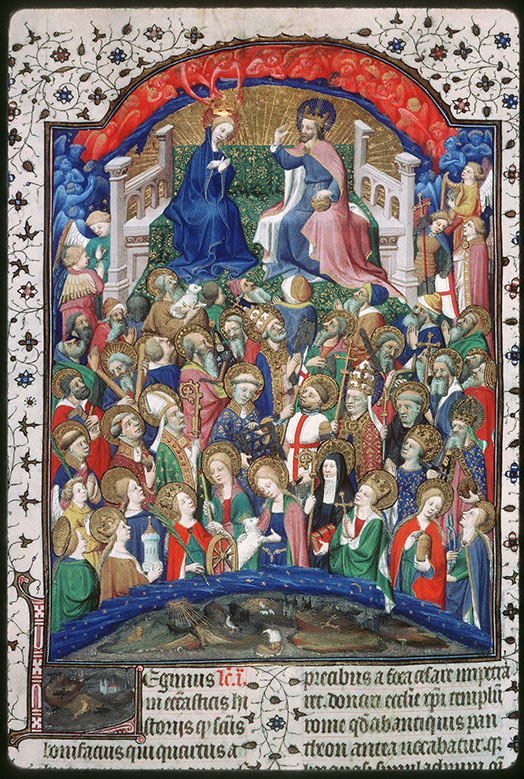 Legimus
in eccłiasticis hi
storijs qꝫ scūs
bonifacius qui quartus a
precibus a foca cesare impetra
ret. donari ecclie xp̄i templū
rome qd̄ ab antiquis pan
theon antea uocabatur.